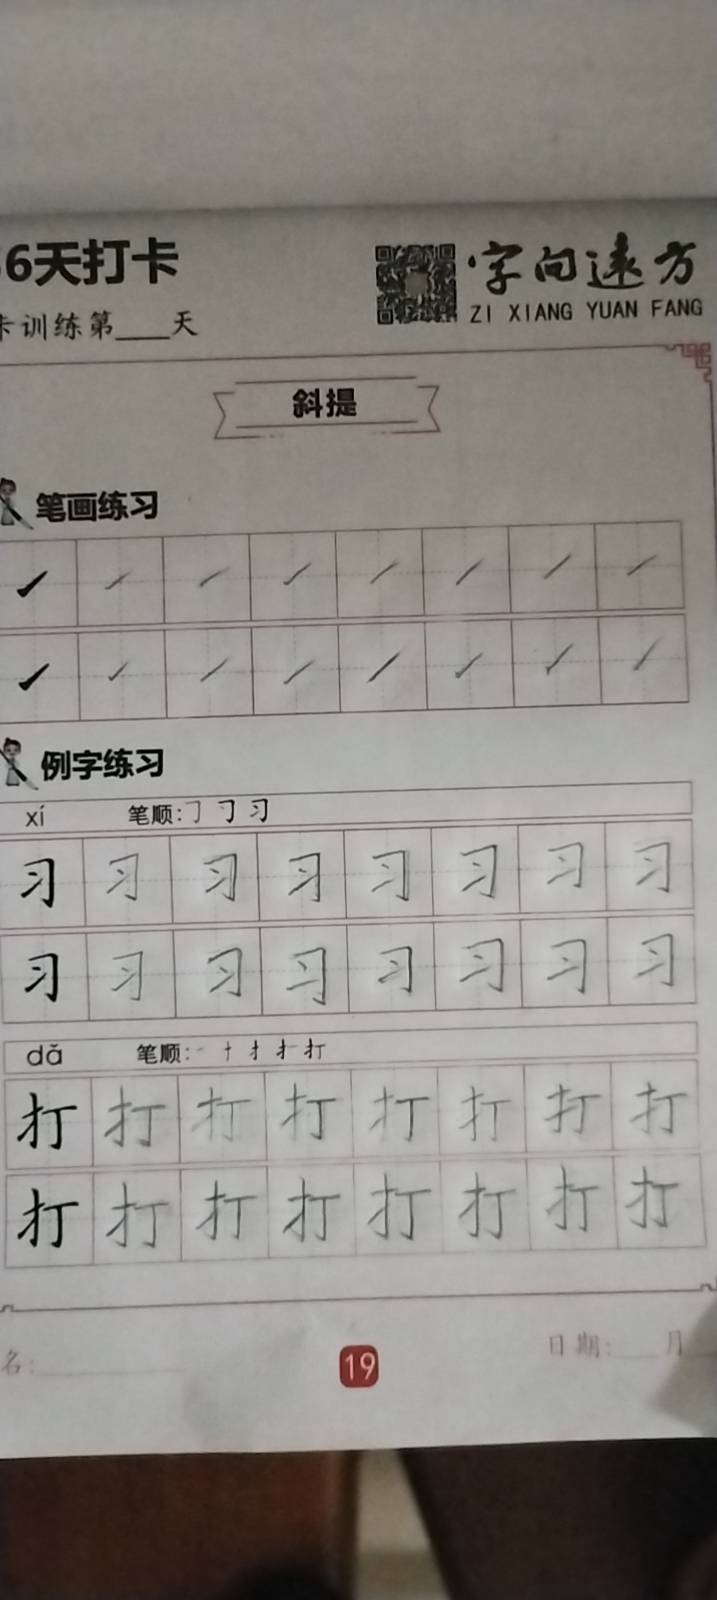 6天打卡
字向远方
ZI XIANG YUAN FANG
卡训练第____天
斜提
笔画练习
例字练习
xí 笔顺: 习
习 习 习 习 习 习 习 习
习 习 习 习 习 习 习 习
dǎ 笔顺: 一 十 扌 打
打 打 打 打 打 打 打 打
打 打 打 打 打 打 打 打
名:
日期:____月
19